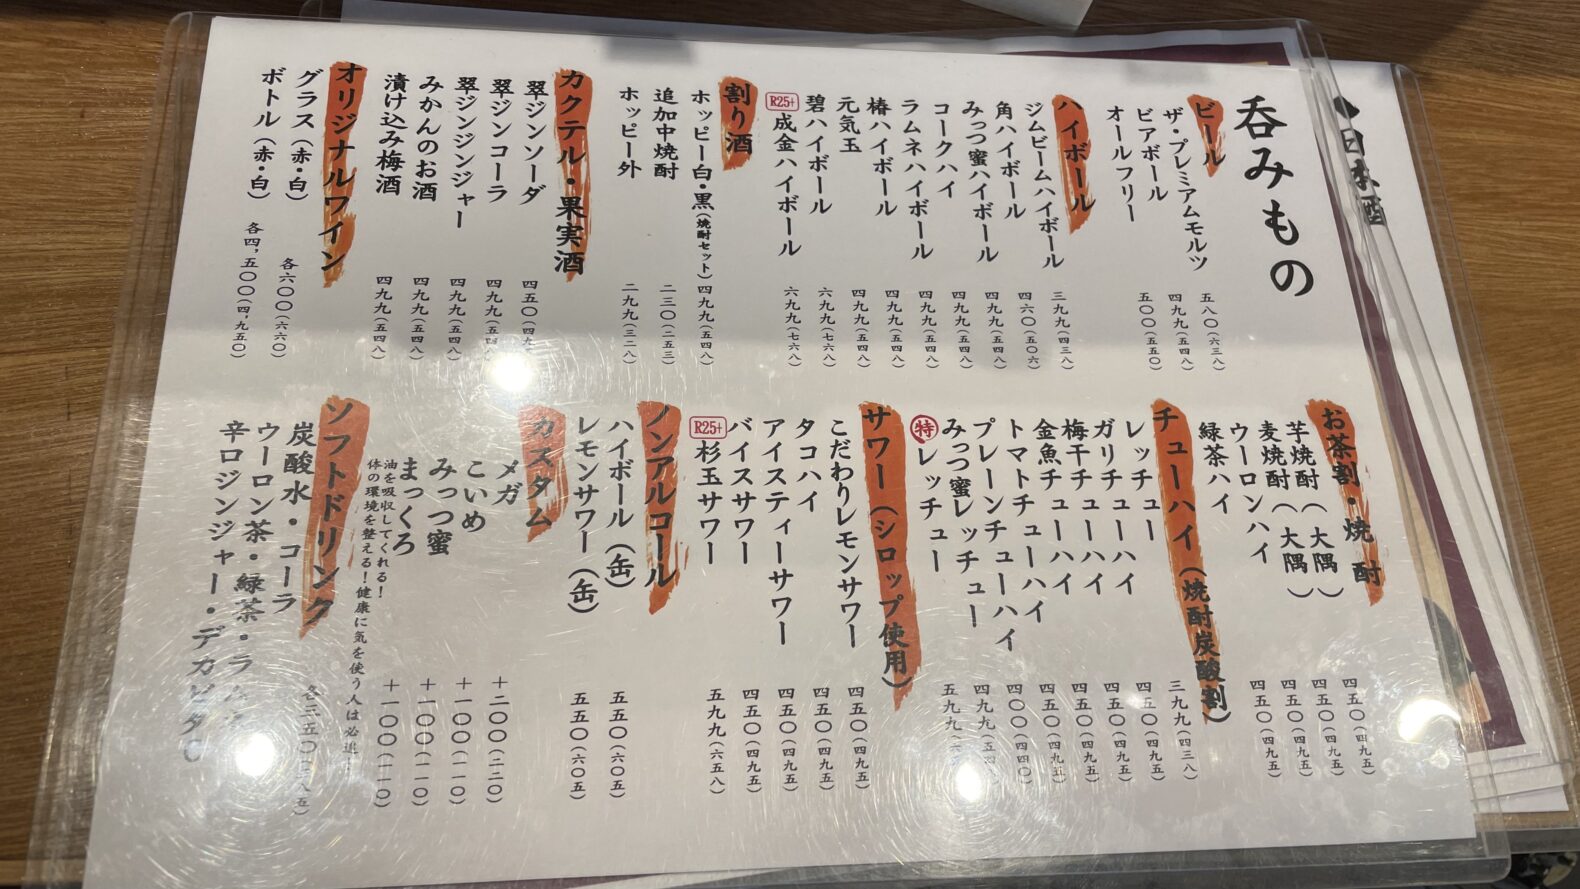 日本酒
呑みもの
ビール
ザ・プレミアムモルツ 五八〇(六三八)
ビアボール 四九九(五四八)
オールフリー 五〇〇(五五〇)
ハイボール
ジムビームハイボール 三九九(四三八)
角ハイボール 四六〇(五〇六)
みっつ蜜ハイボール 四九九(五四八)
コークハイ 四九九(五四八)
ラムネハイボール 四九九(五四八)
椿ハイボール 四九九(五四八)
元気玉 四九九(五四八)
碧ハイボール 六九九(七六八)
R25+ 成金ハイボール 六九九(七六八)
割り酒
ホッピー白・黒(焼酎セット) 四九九(五四八)
追加中焼酎 二三〇(二五三)
ホッピー外 二九九(三二八)
カクテル・果実酒
翠ジンソーダ 四五〇(四九
翠ジンコーラ 四九九(五四八)
翠ジンジンジャー 四九九(五四八)
みかんのお酒 四九九(五四八)
漬け込み梅酒 四九九(五四八)
オリジナルワイン
グラス(赤・白) 各六〇〇(六六〇)
ボトル(赤・白) 各四,五〇〇(四,九五〇)
お茶割・焼酎
芋焼酎(大隅) 四五〇(四九五)
麦焼酎(大隅) 四五〇(四九五)
ウーロンハイ 四五〇(四九五)
緑茶ハイ 四五〇(四九五)
チューハイ(焼酎炭酸割)
レッチュー 三九九(四三八)
ガリチューハイ 四五〇(四九五)
梅干チューハイ 四五〇(四九五)
金魚チューハイ 四五〇(四九五)
トマトチューハイ 四五〇(四九五)
プレーンチューハイ 四〇〇(四四〇)
みっつ蜜レッチュー 四九九(五四
特 レッチュー 五九九(六
サワー(シロップ使用)
こだわりレモンサワー 四五〇(四九五)
タコハイ 四五〇(四九五)
アイスティーサワー 四五〇(四九五)
バイスサワー 四五〇(四九五)
R25+ 杉玉サワー 五九九(六五八)
ノンアルコール
ハイボール(缶) 五五〇(六〇五)
レモンサワー(缶) 五五〇(六〇五)
カスタム
メガ 十二〇〇(二二〇)
こいめ 十一〇〇(一一〇)
みっつ蜜 十一〇〇(一一〇)
まっくろ 十一〇〇(一一〇)
油を吸収してくれる!
体の環境を整える!健康に気を使う人は必追!
ソフトドリンク
炭酸水・コーラ
ウーロン茶・緑茶・ラ
辛口ジンジャー・デカビタC
各三五〇(三八五)